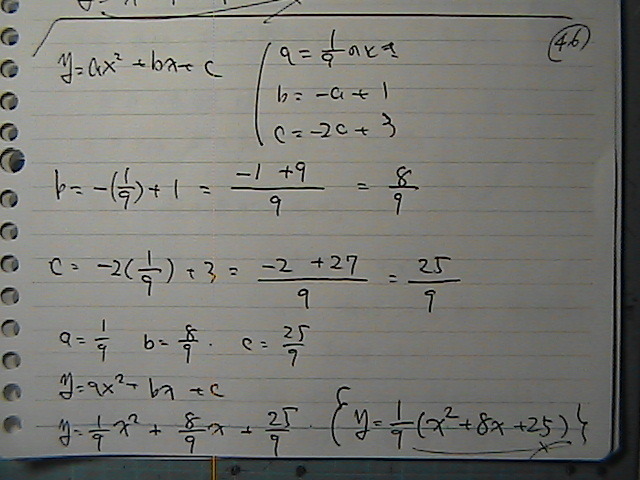 (46)
y=ax²+bx+c
a=1/9
b=-a+1
c=-2a+3
b=-(1/9)+1 = (-1+9)/9 = 8/9
c=-2(1/9)+3 = (-2+27)/9 = 25/9
a=1/9 b=8/9. c=25/9
y=ax²+bx+c
y=1/9x²+8/9x+25/9. {y=1/9(x²+8x+25)}